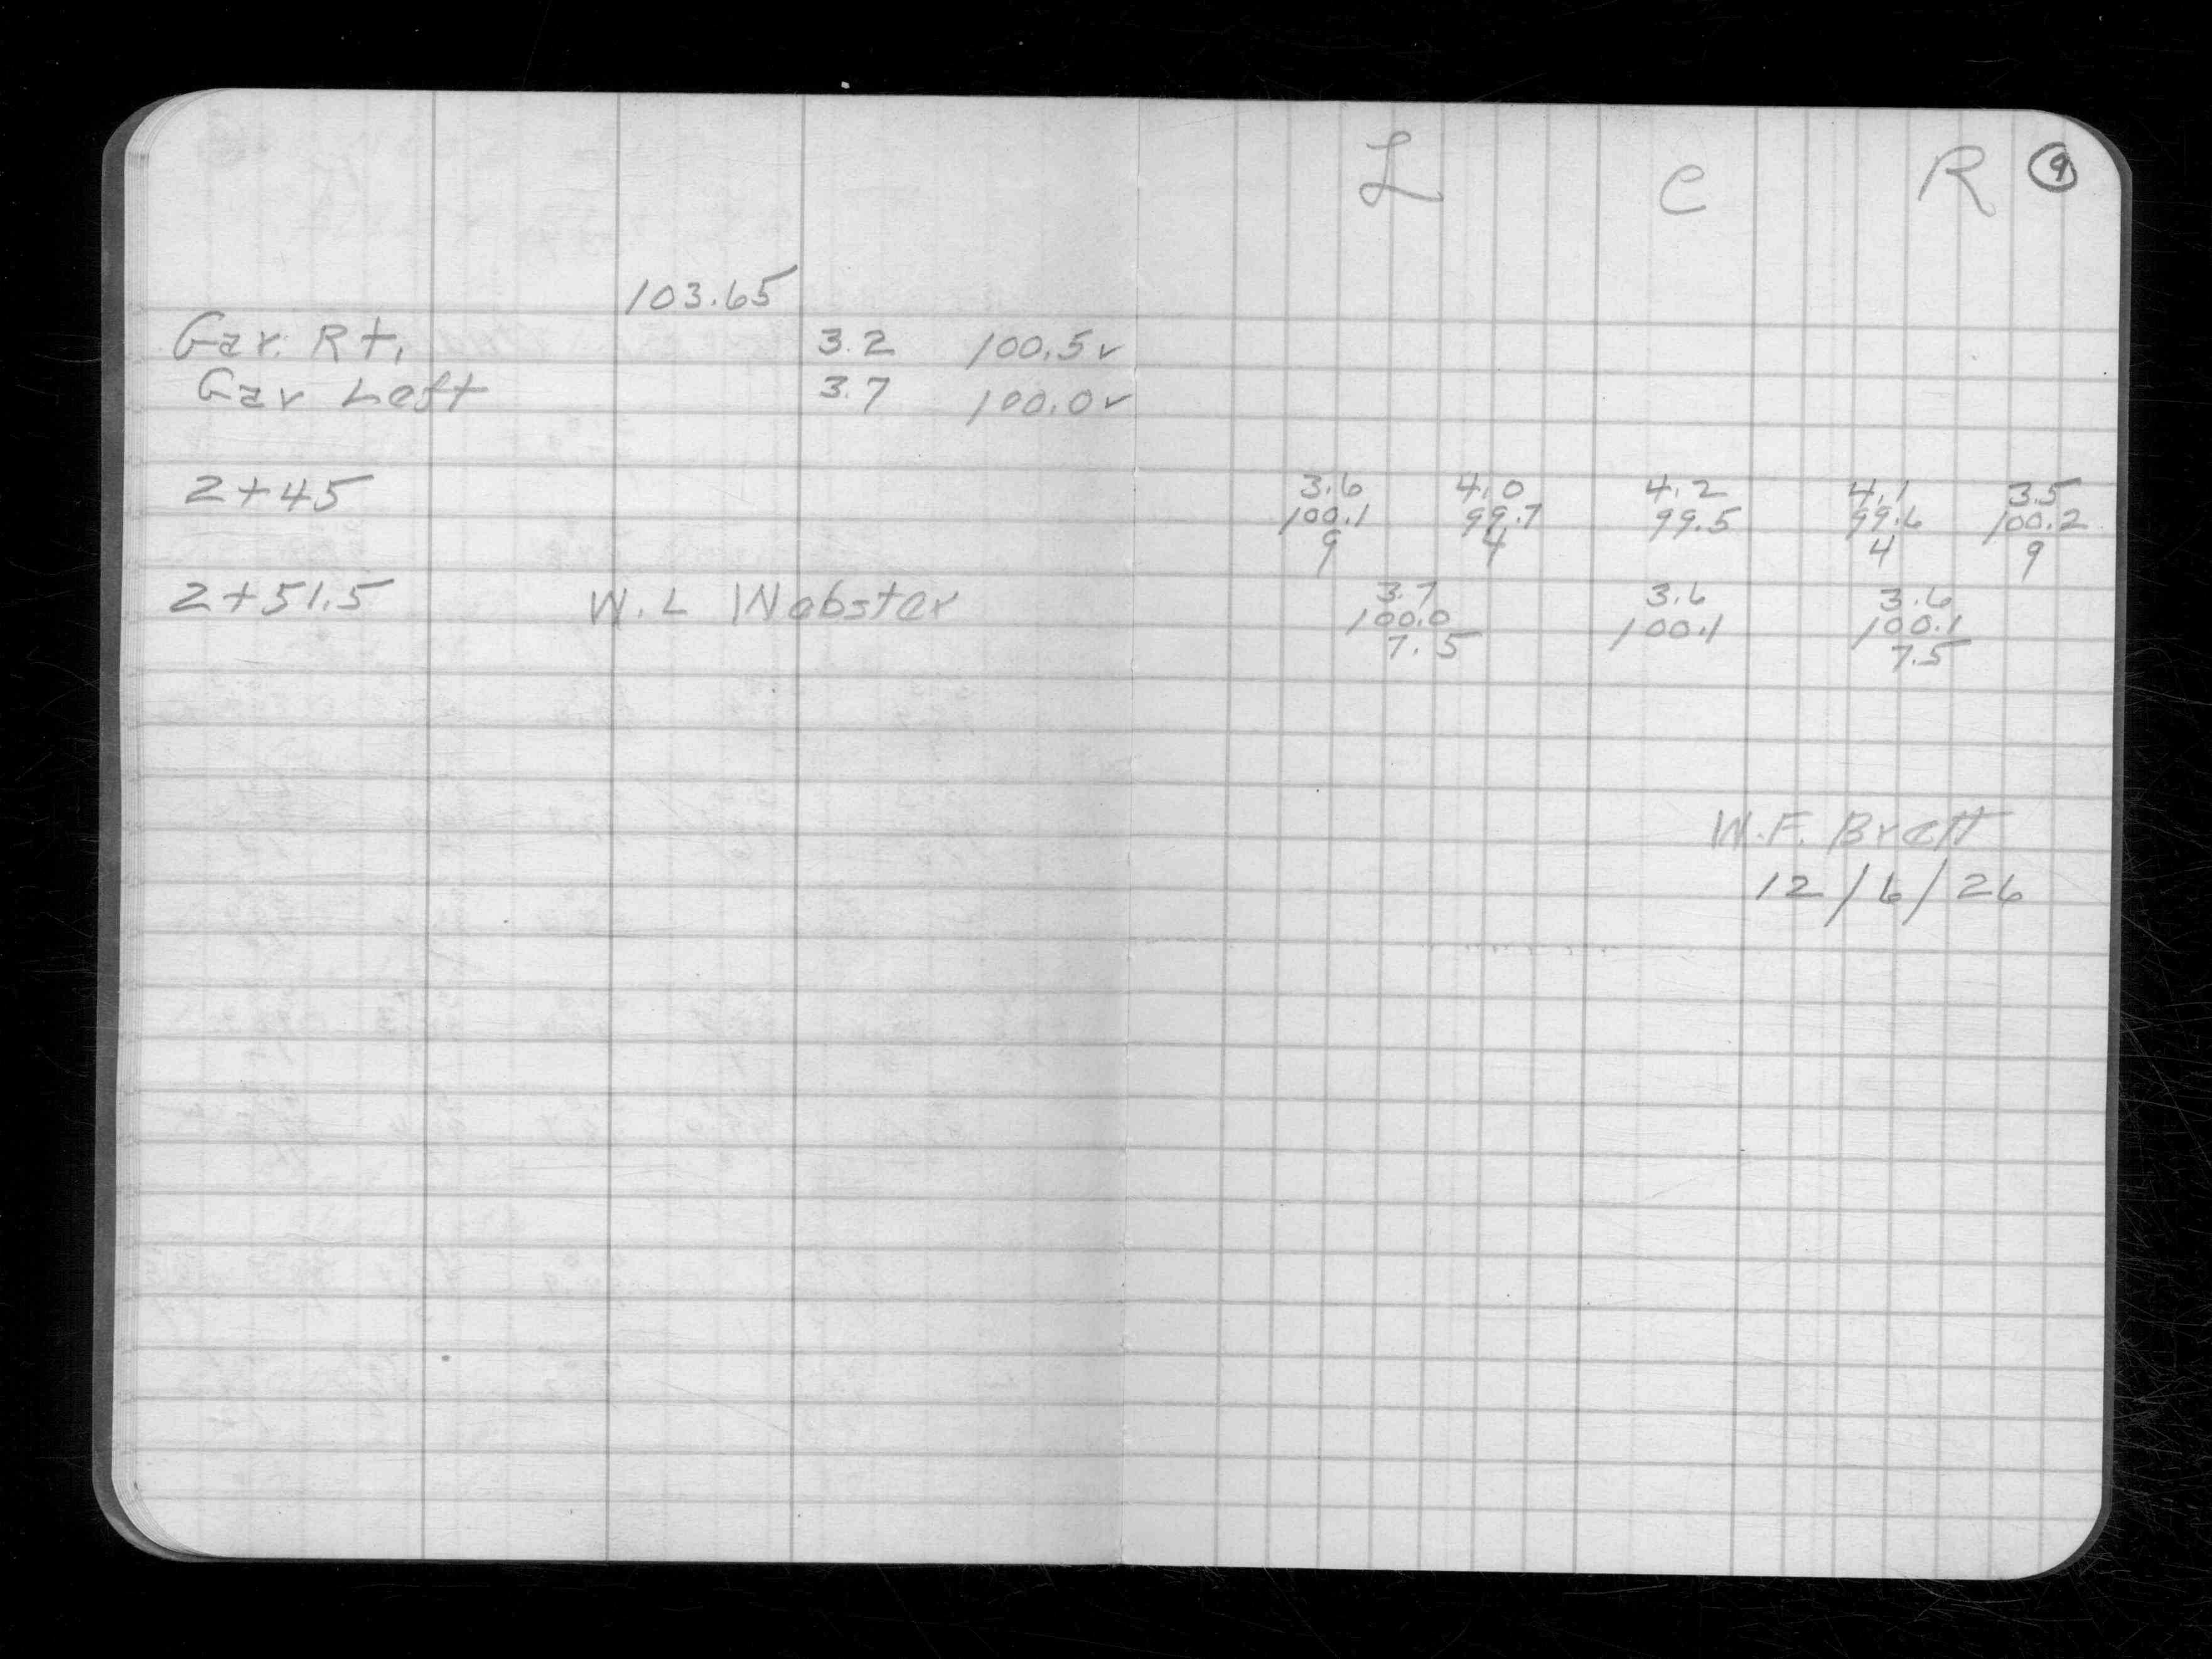 L C R 9
103.65
Gar. Rt. 3.2 100.5✓
Gar Left 3.7 100.0✓
2+45 3.6 4.0 4.2 4.1 3.5
100.1 99.7 99.5 99.6 100.2
9 4 4 9
2+51.5 W. L Webster 3.7 3.6 3.6
100.0 100.1 100.1
7.5 7.5
W.F. Brett
12/6/26